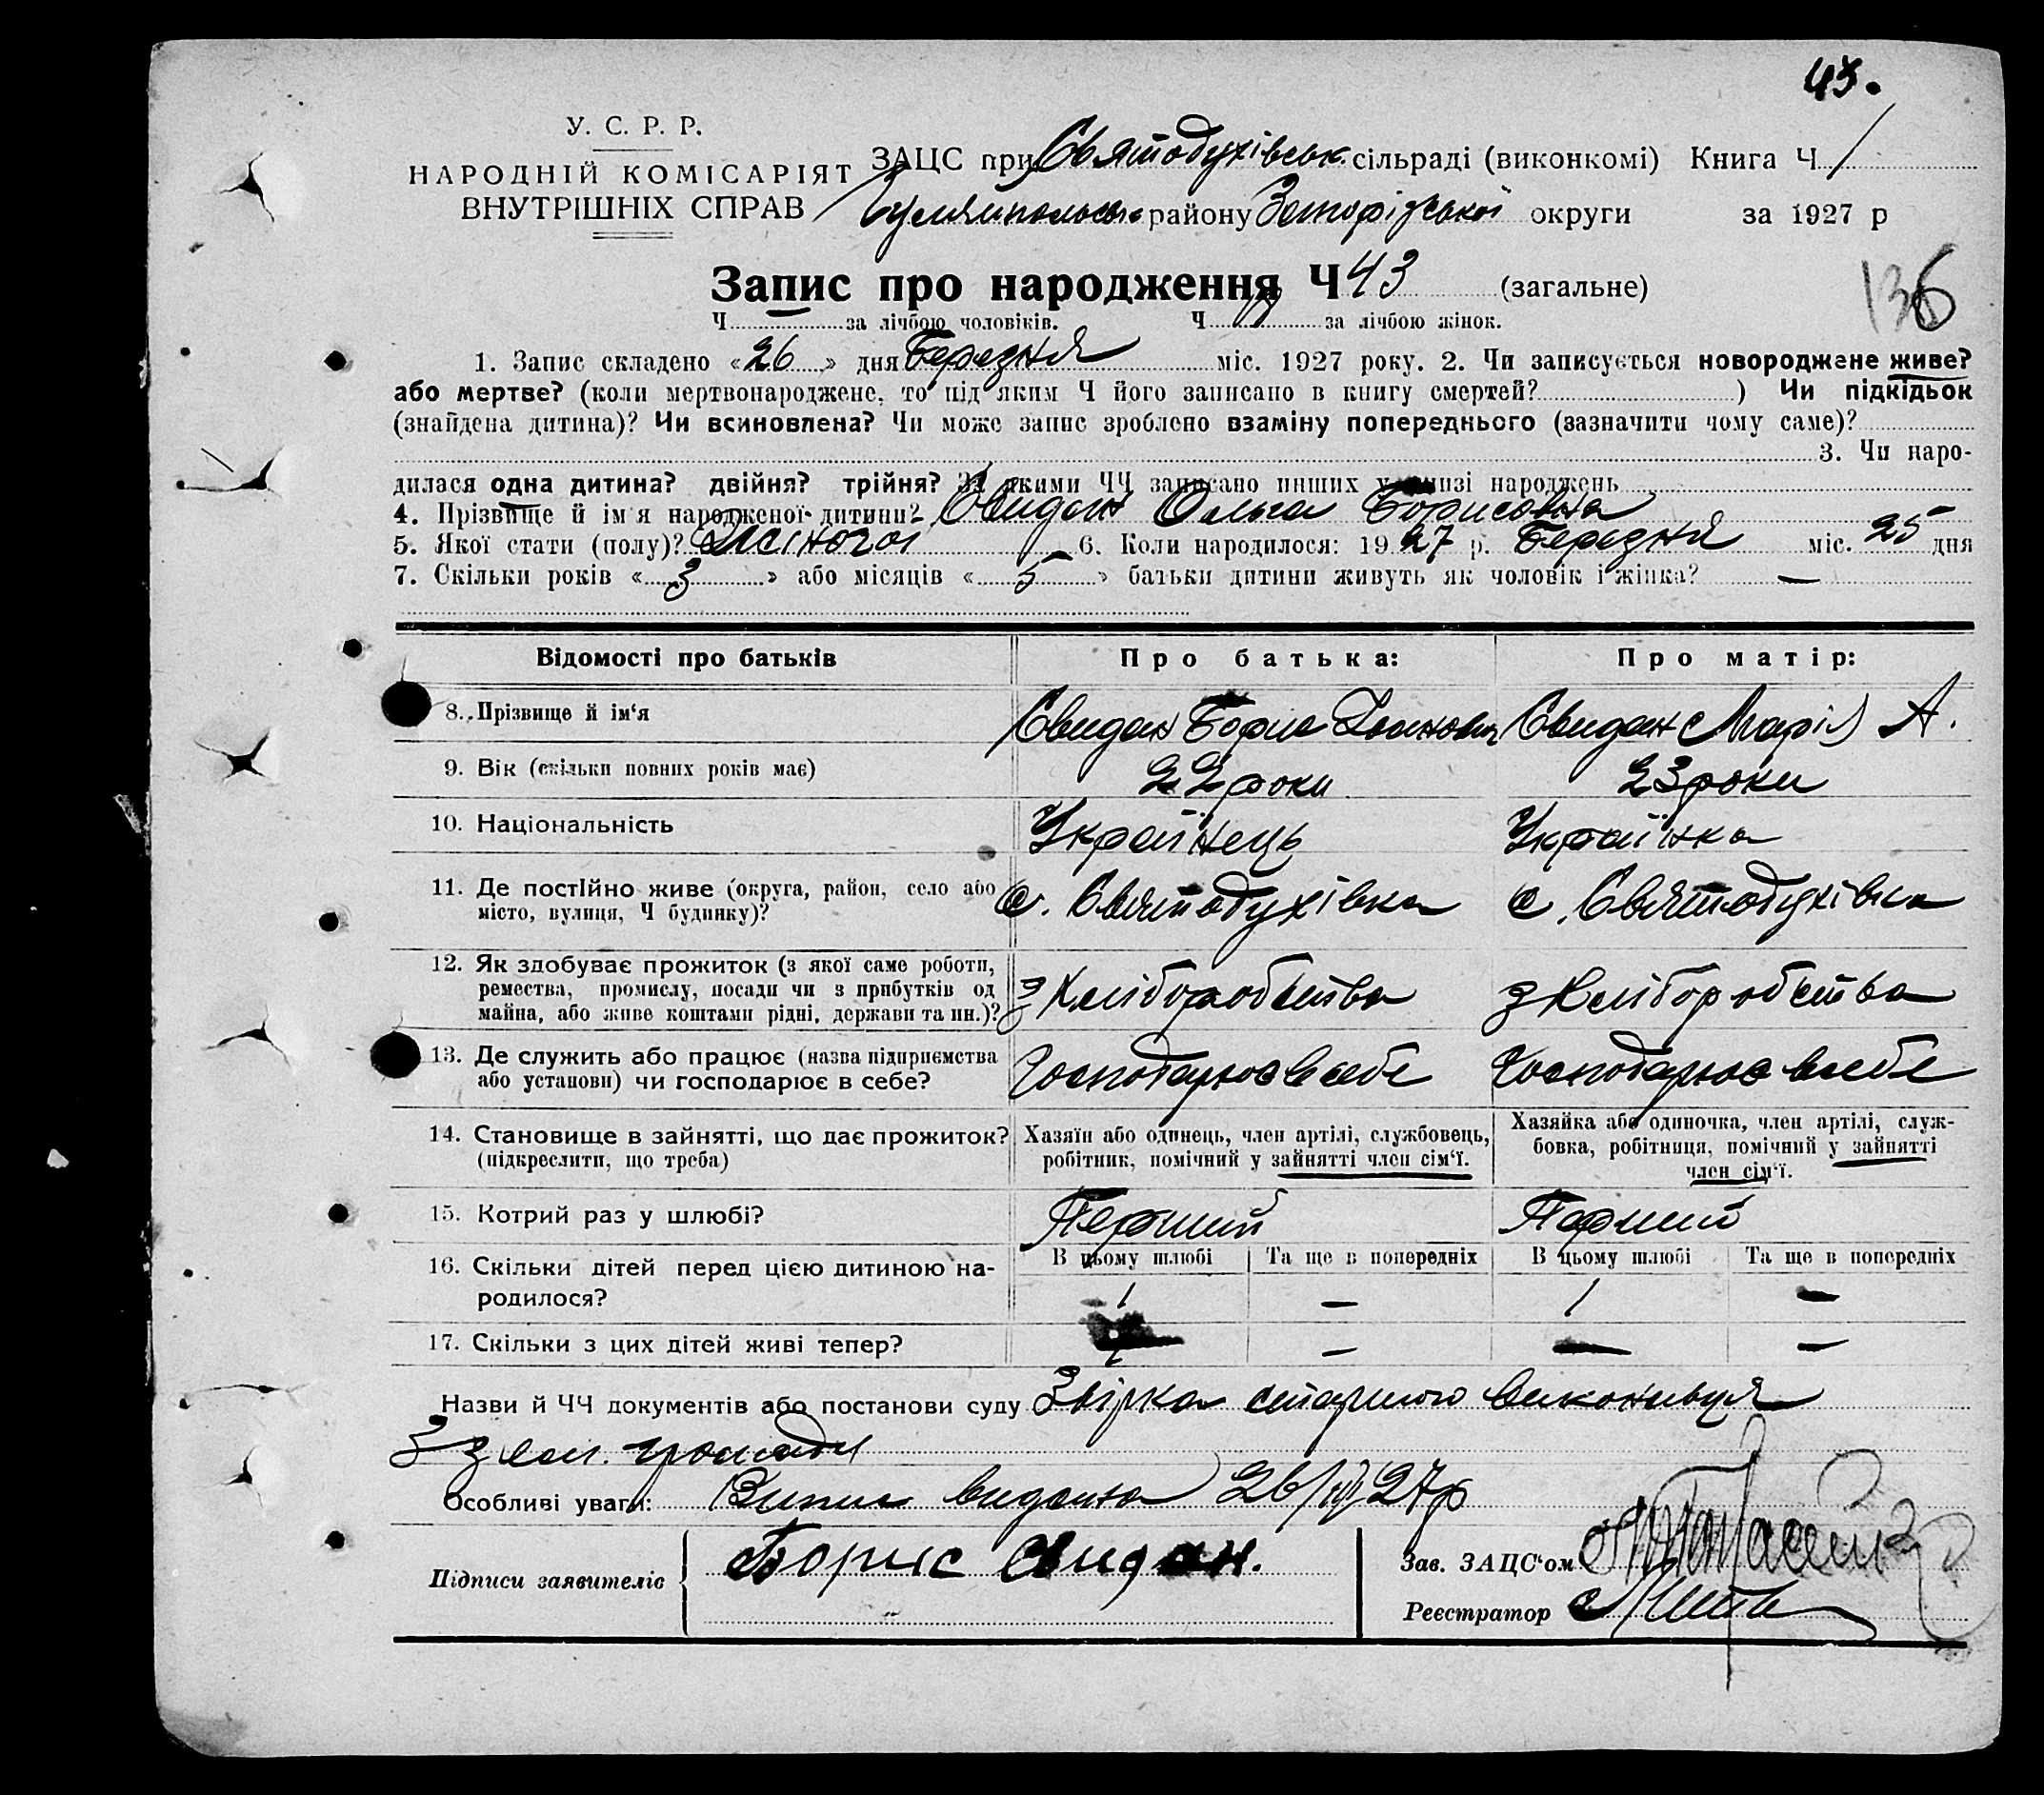 43.
У. С. Р. Р.
НАРОДНІЙ КОМІСАРІЯТ
ВНУТРІШНІХ СПРАВ
ЗАЦС при Святодухівськ. сільраді (виконкомі) Книга Ч 1
Гуляйпольськ. району Запорізської округи за 1927 р
Запис про народження Ч 43 (загальне)
136
Ч — за лічбою чоловіків. Ч за лічбою жінок.
1. Запис складено «26» дня Березня міс. 1927 року. 2. Чи записується новороджене живе?
або мертве? (коли мертвонароджене, то під яким Ч його записано в книгу смертей? ) Чи підкідьок
(знайдена дитина)? Чи всиновлена? Чи може запис зроблено взаміну попереднього (зазначити чому саме)?
3. Чи наро-
дилася одна дитина? двійня? трійня? За якими ЧЧ записано инших у книзі народжень
4. Прізвище й ім'я народженої дитини? Свидан Ольга Борисовна
5. Якої стати (полу)? Жіночої 6. Коли народилося: 1927 р. Березня міс. 25 дня
7. Скільки років «3» або місяців «5» батьки дитини живуть як чоловік і жінка? —
Відомості про батьків Про батька: Про матір:
8. Прізвище й ім'я Свидан Борис Іванович Свидан Марія А.
9. Вік (скільки повних років має) 22 роки 23 роки
10. Національність Українець Українка
11. Де постійно живе (округа, район, село або
місто, вулиця, Ч будинку)? с. Святодухівка с. Святодухівка
12. Як здобуває прожиток (з якої саме роботи,
ремества, промислу, посади чи з прибутків од
майна, або живе коштами рідні, держави та ин.)? з Хліборобства з Хліборобства
13. Де служить або працює (назва підприємства
або установи) чи господарює в себе? Господарює в себе Господарює в себе
14. Становище в зайнятті, що дає прожиток?
(підкреслити, що треба)
Хазяїн або одинець, член артілі, службовець,
робітник, помічний у зайнятті член сім'ї.
Хазяйка або одиночка, член артілі, служ-
бовка, робітниця, помічний у зайнятті
член сім'ї.
15. Котрий раз у шлюбі? Перший Перший
16. Скільки дітей перед цією дитиною на-
родилося?
В цьому шлюбі Та ще в попередніх В цьому шлюбі Та ще в попередніх
1 — 1 —
17. Скільки з цих дітей живі тепер? — — —
Назви й ЧЧ документів або постанови суду Звірка старшого виконавця
3 зем. громади
Особливі уваги: Випис видана 26/III 27р
Підписи заявителів Борис Свидан.
Зав. ЗАЦС'ом
Реєстратор